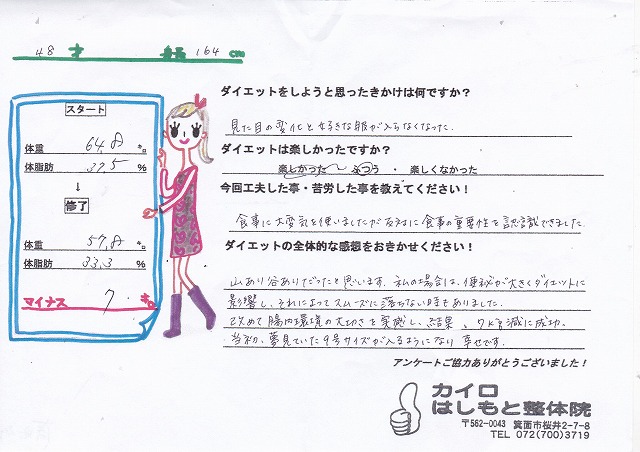 48 才 身長 164 cm
ダイエットをしようと思ったきかけは何ですか？
見た目の変化と好きな服が入らなくなった.
ダイエットは楽しかったですか？
楽しかった〜ふつう ・ 楽しくなかった
今回工夫した事・苦労した事を教えてください！
食事に大変気を使いましたが反対に食事の重要性を認識できました.
ダイエットの全体的な感想をおきかせください！
山あり谷ありだったと思います. 私の場合は、便秘が大きくダイエットに
影響し、それによってスムーズに落ちない時もありました.
改めて腸内環境の大切さを実感し、結果、7kg減に成功.
当初、夢見ていた9号サイズが入るようになり 幸せです.
スタート
体重 64,8 キロ
体脂肪 37,5 %
↓
修了
体重 57,8 キロ
体脂肪 33,3 %
マイナス 7 キロ
アンケートご協力ありがとうございました！
カイロ
はしもと整体院
〒562-0043 箕面市桜井2-7-8
TEL 072(700)3719